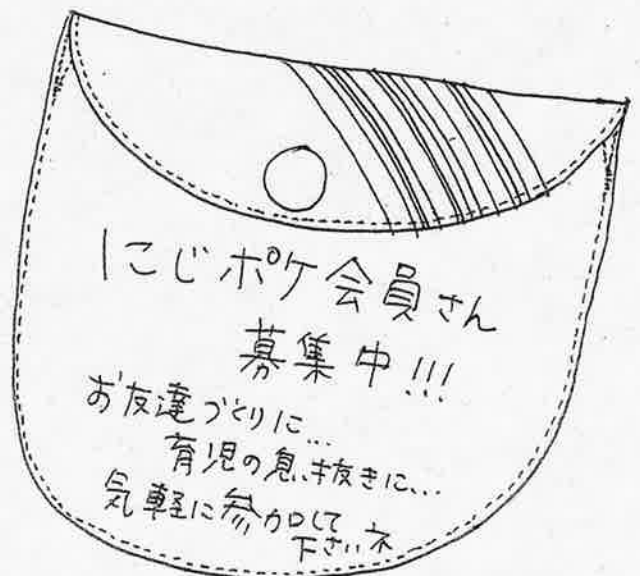 にじポケ会員さん
募集中!!!
お友達づくりに...
育児の息抜きに...
気軽に参加して
下さいネ